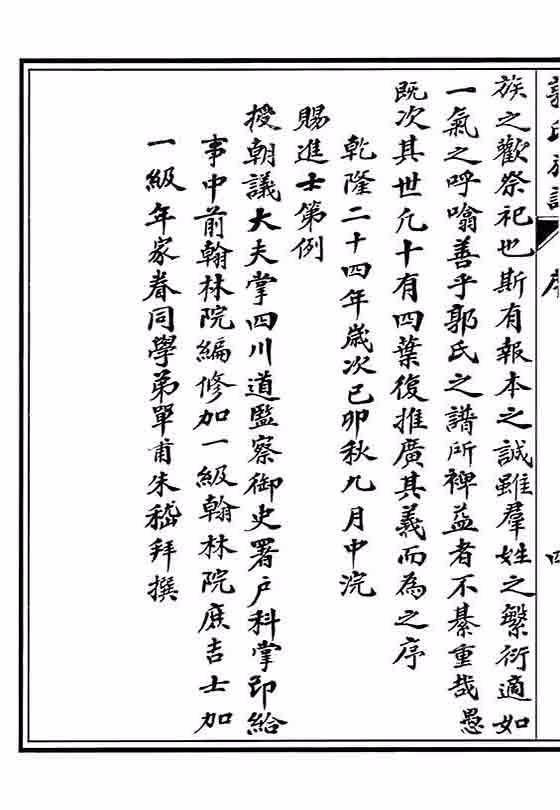 郭氏族譜
序
四
族之歡祭祀也斯有報本之誠雖羣姓之繁衍適如
一氣之呼噏善乎郭氏之譜所裨益者不綦重哉愚
既次其世凡十有四葉復推廣其義而為之序
乾隆二十四年歲次己卯秋九月中浣
賜進士第例
授朝議大夫掌四川道監察御史署戶科掌印給
事中前翰林院編修加一級翰林院庶吉士加
一級年家眷同學弟單甫朱嵇拜撰